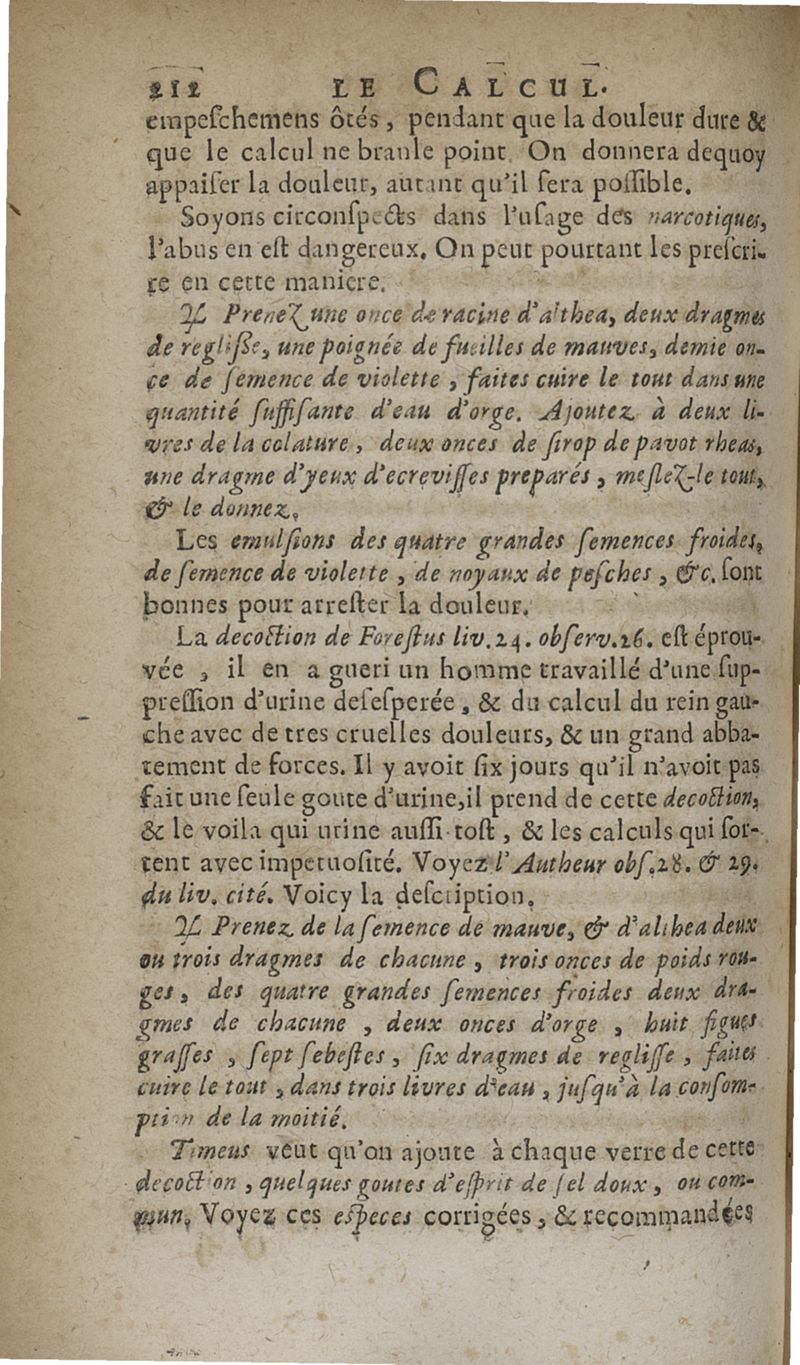 212 LE CALCUL.
empeſchemens ôtés, pendant que la douleur dure &
que le calcul ne branle point. On donnera dequoy
appaiſer la douleur, autant qu'il ſera poſſible.
Soyons circonſpects dans l'uſage des narcotiques,
l'abus en eſt dangereux. On peut pourtant les preſcri-
re en cette maniere.
℞ Prenez une once de racine d'althea, deux dragmes
de regliſſe, une poignée de fueilles de mauves, demie on-
ce de ſemence de violette, faites cuire le tout dans une
quantité ſuffiſante d'eau d'orge. Ajoutez à deux li-
vres de la colature, deux onces de ſirop de pavot rheas,
une dragme d'yeux d'ecreviſſes preparés, meſlez-le tout,
& le donnez.
Les emulſions des quatre grandes ſemences froides,
de ſemence de violette, de noyaux de peſches, &c. ſont
bonnes pour arreſter la douleur.
La decoction de Foreſtus liv. 24. obſerv. 26. eſt éprou-
vée, il en a gueri un homme travaillé d'une ſup-
preſſion d'urine deſeſperée, & du calcul du rein gau-
che avec de tres cruelles douleurs, & un grand abba-
tement de forces. Il y avoit ſix jours qu'il n'avoit pas
fait une ſeule goute d'urine, il prend de cette decoction,
& le voila qui urine auſſi-toſt, & les calculs qui ſor-
tent avec impetuoſité. Voyez l'Autheur obſ. 28. & 29.
du liv. cité. Voicy la deſcription.
℞ Prenez de la ſemence de mauve, & d'althea deux
ou trois dragmes de chacune, trois onces de poids rou-
ges, des quatre grandes ſemences froides deux dra-
gmes de chacune, deux onces d'orge, huit figues
graſſes, ſept ſebeſtes, ſix dragmes de regliſſe, faites
cuire le tout, dans trois livres d'eau, juſqu'à la conſom-
ption de la moitié.
Timeus veut qu'on ajoute à chaque verre de cette
decoction, quelques goutes d'eſprit de ſel doux, ou com-
mun. Voyez ces eſpeces corrigées, & recommandées